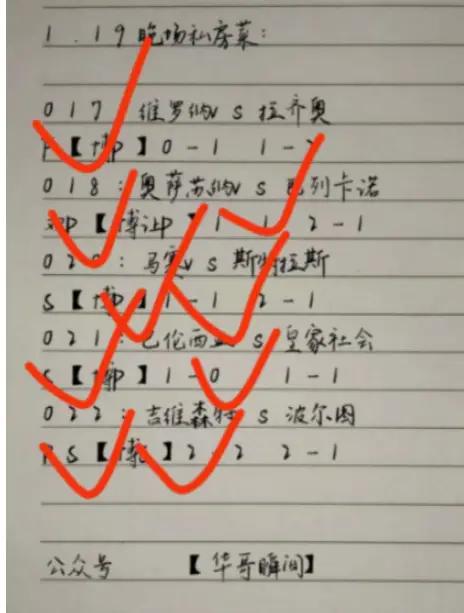 1.19晚场私房菜:
017 维罗纳v s 拉齐奥
【博P】0-1 1-
018:奥萨苏纳v s 巴列卡诺
P【博让P】1 1 2-1
02 :马赛v s 斯特拉斯
S【博P】1-1 2-1
021:巴伦西亚 s 皇家社会
【博P】1-0 1-1
022:吉维森特 s 波尔图
S【博 】2-2 2-1
公众号 【华哥瞬间】